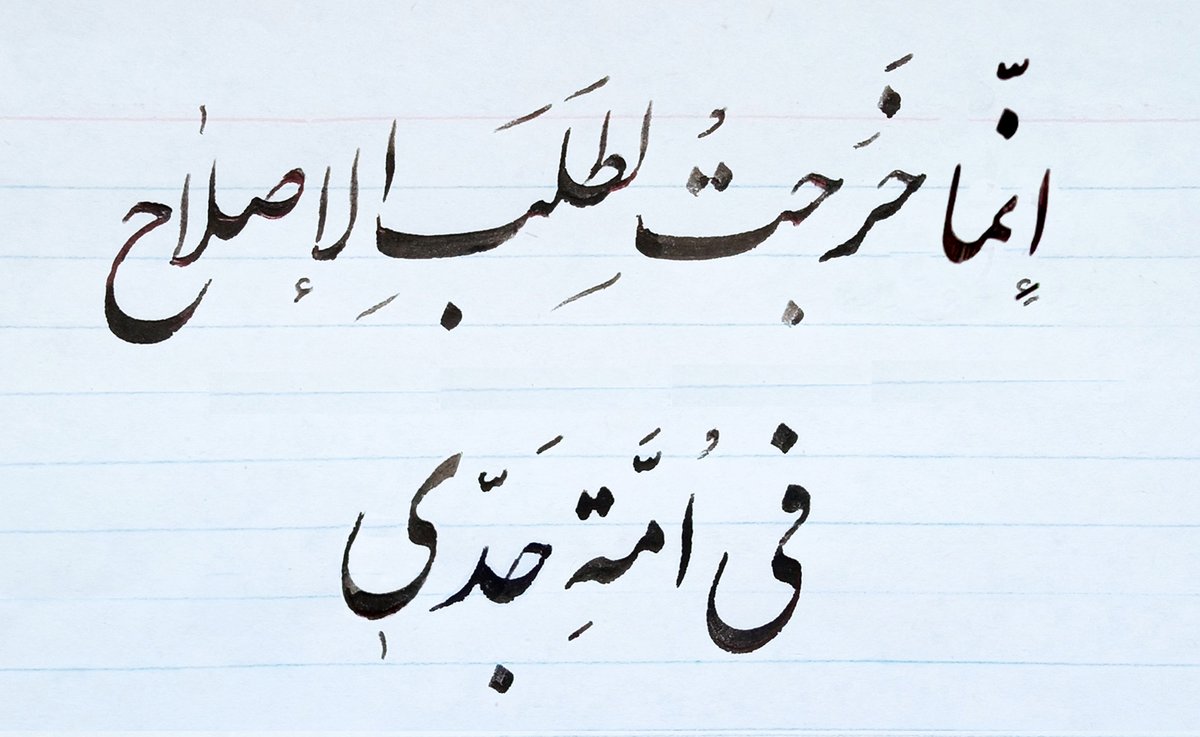 إنّما خَرَجتُ لطَلَبِ الإصلاحِ
فی اُمَّةِ جَدّی